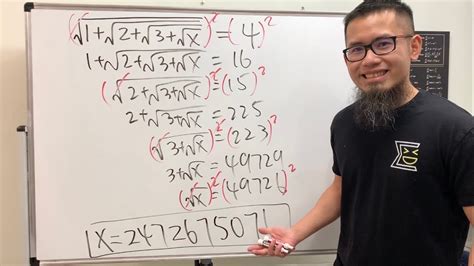 (√(1+√(2+√(3+√x))))² = (4)²
1+√(2+√(3+√x)) = 16
(√(2+√(3+√x)))² = (15)²
2+√(3+√x) = 225
(√(3+√x))² = (223)²
3+√x = 49729
(√x)² = (49726)²
x = 2472675076